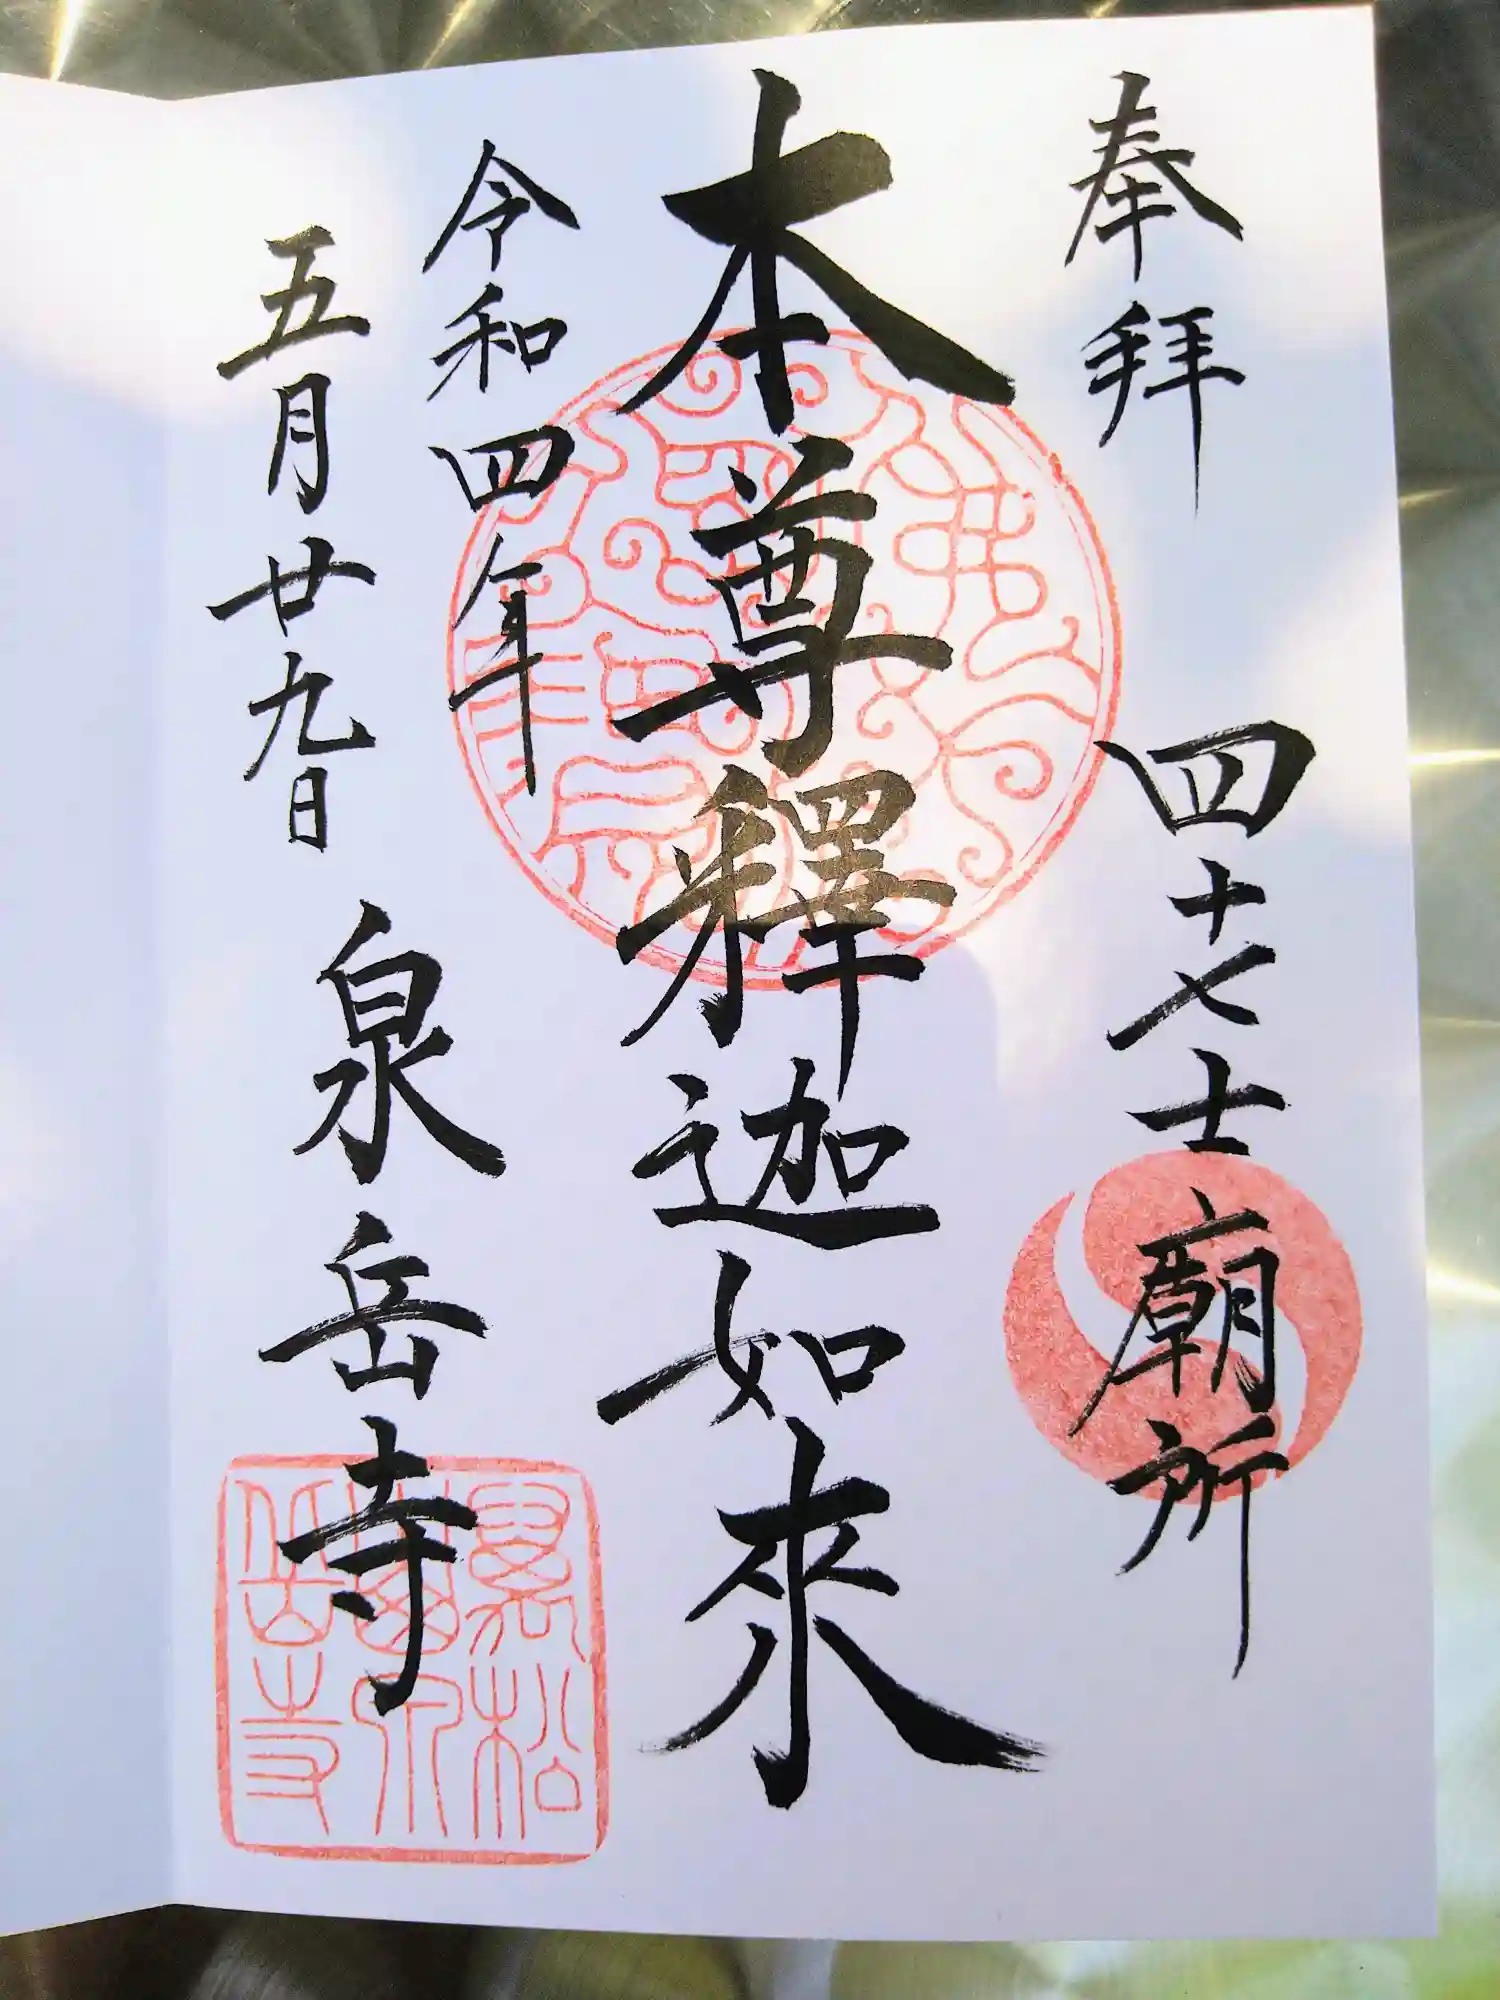 奉拝
四十七士廟所
本尊釋迦如來
令和四年
五月廿九日
泉岳寺
萬松
泉岳寺